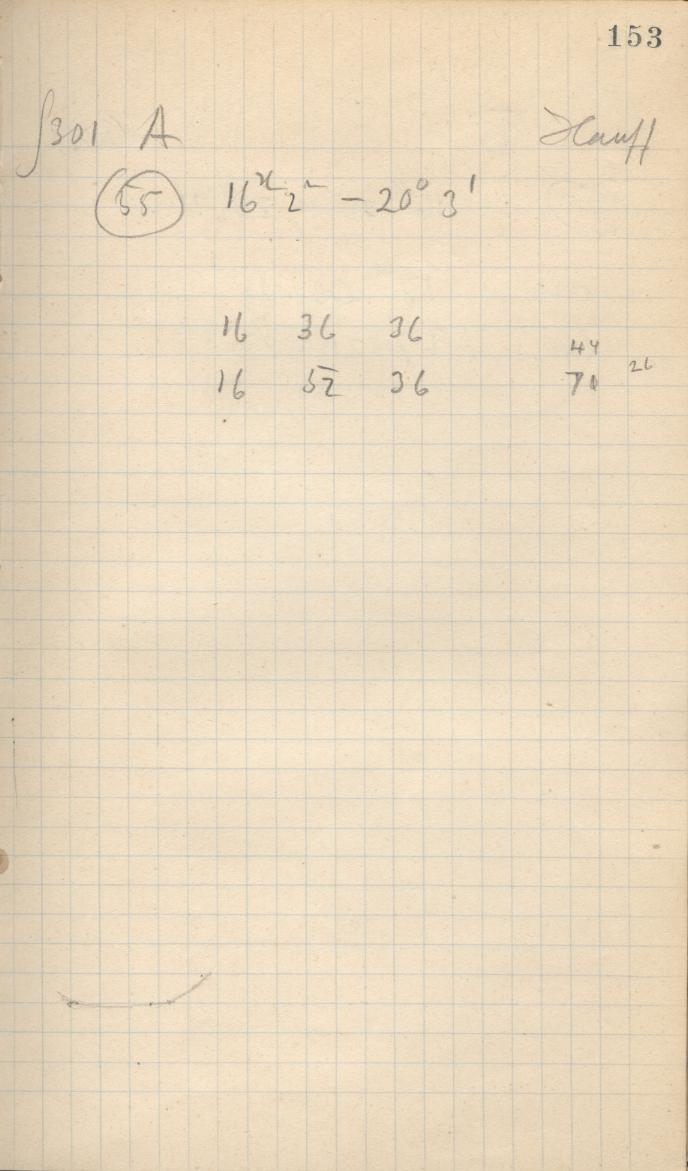 153
∫301 A Hauff
55 16ʰ 2ᵐ – 20° 3'
16 36 36
44
16 52 36 71 26